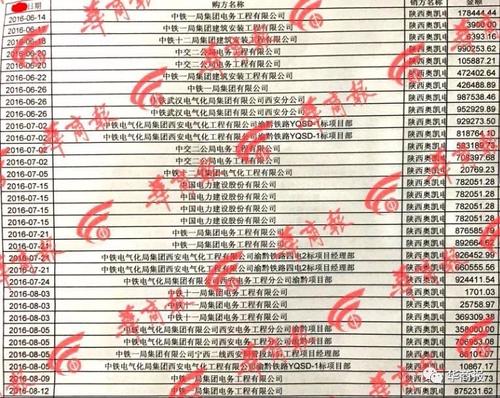 日期 购方名称 销方名称 金额
2016-06-14 中铁一局集团电务工程有限公司 陕西奥凯电 178444.44
中铁一局集团建筑安装工程有限公司 陕西奥凯电 3900.00
中铁十二局集团建筑安装工程有限公司 陕西奥凯电 8393.16
2016-06-20 中交二公局电务工程有限公司 陕西奥凯电 990253.62
中交二公局电务工程有限公司 陕西奥凯电 105887.21
2016-06-22 中铁一局集团建筑安装工程有限公司 陕西奥凯电 472402.64
2016-06-22 中铁一局集团有限公司 陕西奥凯电 426488.89
2016-06-26 中铁武汉电气化局集团有限公司西安分公司 陕西奥凯电 987538.46
2016-06-26 中铁武汉电气化局集团有限公司西安分公司 陕西奥凯电 952929.89
2016-07-02 中铁电气化局集团西安电气化工程有限公司渝黔铁路YQSD-1标项目部 陕西奥凯电 929273.50
2016-07-02 中铁电气化局集团西安电气化工程有限公司渝黔铁路YQSD-1标项目部 陕西奥凯电
2016-07-02 中交二公局电务工程有限公司 陕西奥凯电
2016-07-02 中交二公局电务工程有限公司 陕西奥凯电
2016-07-05 中铁十二局集团电气化工程有限公司 陕西奥凯电 20769.23
2016-07-15 中国电力建设股份有限公司 陕西奥凯电 782051.28
2016-07-15 中国电力建设股份有限公司 陕西奥凯电 782051.28
2016-07-15 中国电力建设股份有限公司 陕西奥凯电 782051.28
2016-07-21 中铁一局集团电务工程有限公司 陕西奥凯电 876585.79
2016-07-21 中铁一局集团电务工程有限公司 陕西奥凯电 892664.62
中铁电气化局集团西安电气化工程有限公司渝黔铁路四电2标项目经理部 陕西奥凯电 926452.99
2016-07-21 中铁电气化局集团西安电气化工程有限公司渝黔铁路四电2标项目经理部 陕西奥凯电 660555.56
2016-07-24 中铁电气化局集团西安电气化工程有限公司渝黔项目部 陕西奥凯电 924411.54
2016-08-03 中铁十一局集团电务工程有限公司 陕西奥凯电 1701.03
2016-08-03 中铁十一局集团电务工程有限公司 陕西奥凯电 25758.97
2016-08-03 中铁十一局集团电务工程有限公司 陕西奥凯电 369309.23
2016-08-05 中铁电气化局集团有限公司西安电务工程分公司渝黔项目部 陕西奥凯电
2016-08-05 中铁电气化局集团有限公司西安电务工程分公司渝黔项目部 陕西奥凯电
2016-08-05 中铁一局集团有限公司宁西二线西安安管段站后工程项目经理部 陕西奥凯电
2016-08-05 中铁电气化局集团西安电气化工程有限公司渝黔铁路YQSD-1标项目部 陕西奥凯电 10867.17
2016-08-09 中铁一局集团电务工程有限公司
2016-08-12 中铁一局集团电务工程有限公司 陕西奥凯电 875231.62
华商报